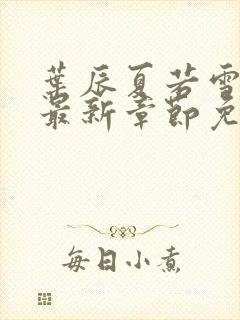 葉辰夏若雪
最新章節免
每日小煮